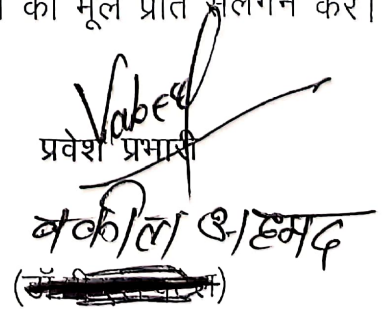 की मूल प्रति संलग्न करें।
Vakeel
प्रवेश प्रभारी
वकील अहमद